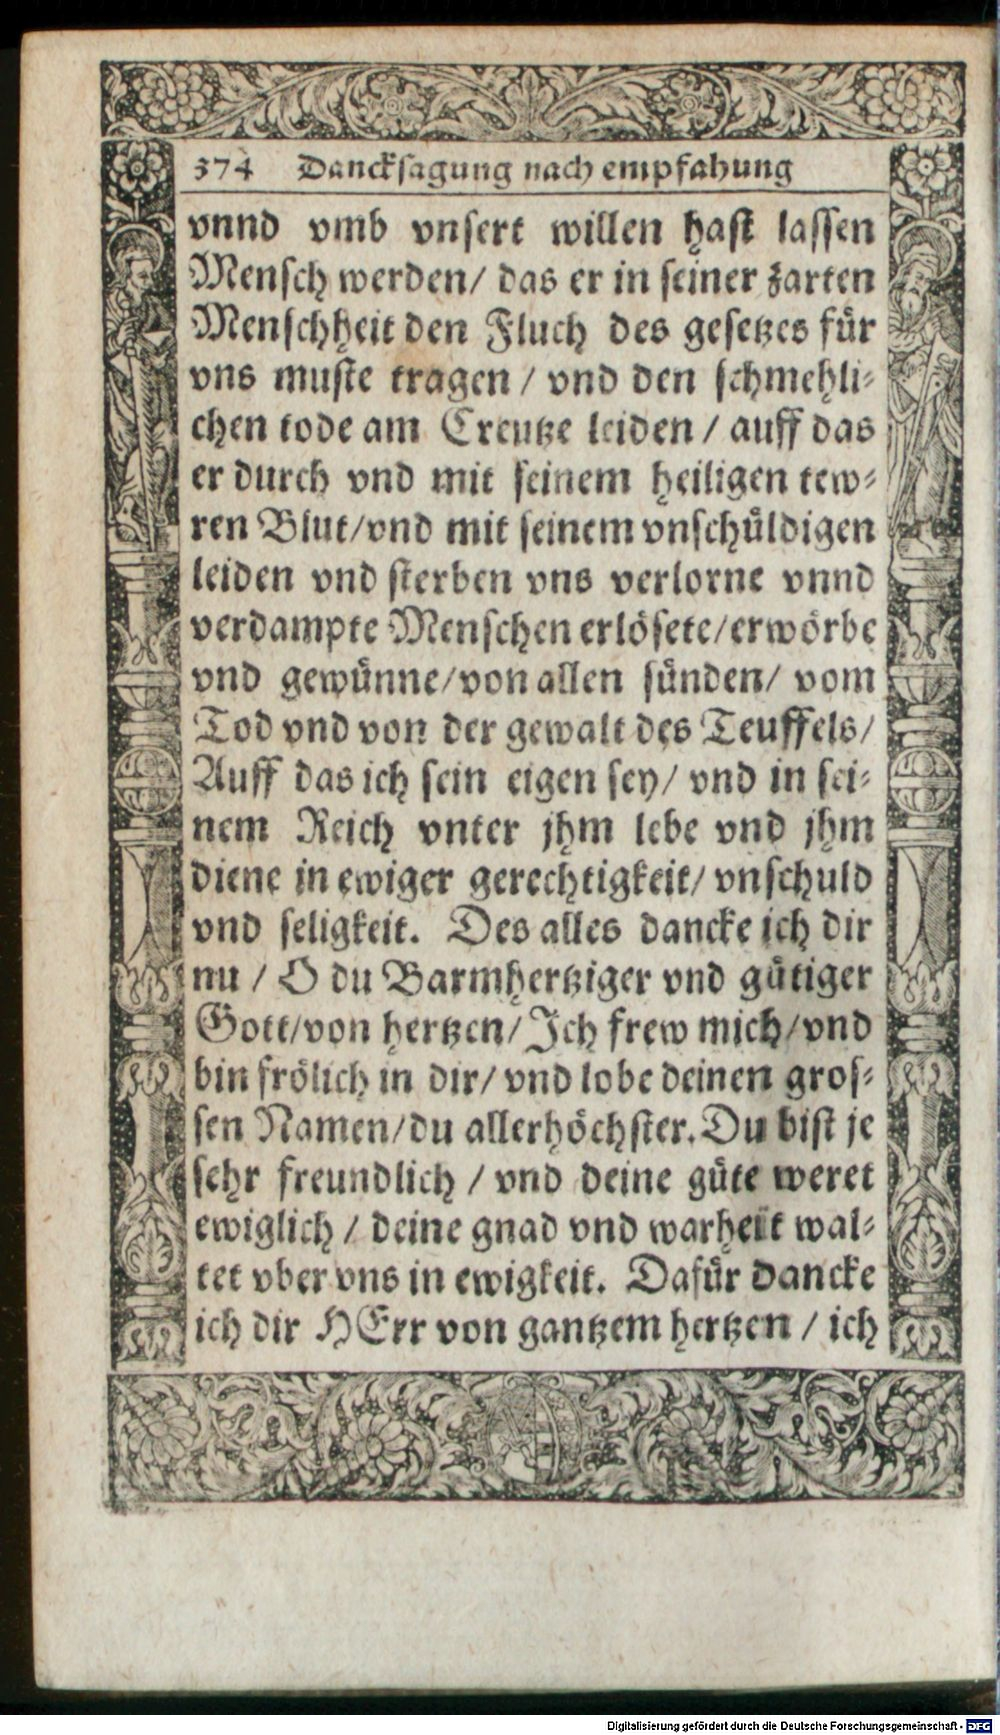 374 Dancksagung nach empfahung
vnnd vmb vnsert willen hast lassen
Mensch werden/ das er in seiner zarten
Menschheit den Fluch des gesetzes für
vns muste tragen / vnd den schmehli-
chen tode am Creutze leiden / auff das
er durch vnd mit seinem heiligen tew-
ren Blut/vnd mit seinem vnschüldigen
leiden vnd sterben vns verlorne vnnd
verdampte Menschen erlösete/erwörbe
vnd gewünne/von allen sünden/ vom
Tod vnd von der gewalt des Teuffels/
Auff das ich sein eigen sey/ vnd in sei-
nem Reich vnter jhm lebe vnd jhm
diene in ewiger gerechtigkeit/ vnschuld
vnd seligkeit. Des alles dancke ich dir
nu / O du Barmhertziger vnd gütiger
Gott/von hertzen/Ich frew mich/vnd
bin frölich in dir/ vnd lobe deinen gros-
sen Namen/du allerhöchster. Du bist je
sehr freundlich / vnd deine güte weret
ewiglich / deine gnad vnd warheit wal-
tet vber vns in ewigkeit. Dafür dancke
ich dir HErr von gantzem hertzen / ich
Digitalisierung gefördert durch die Deutsche Forschungsgemeinschaft - DFG